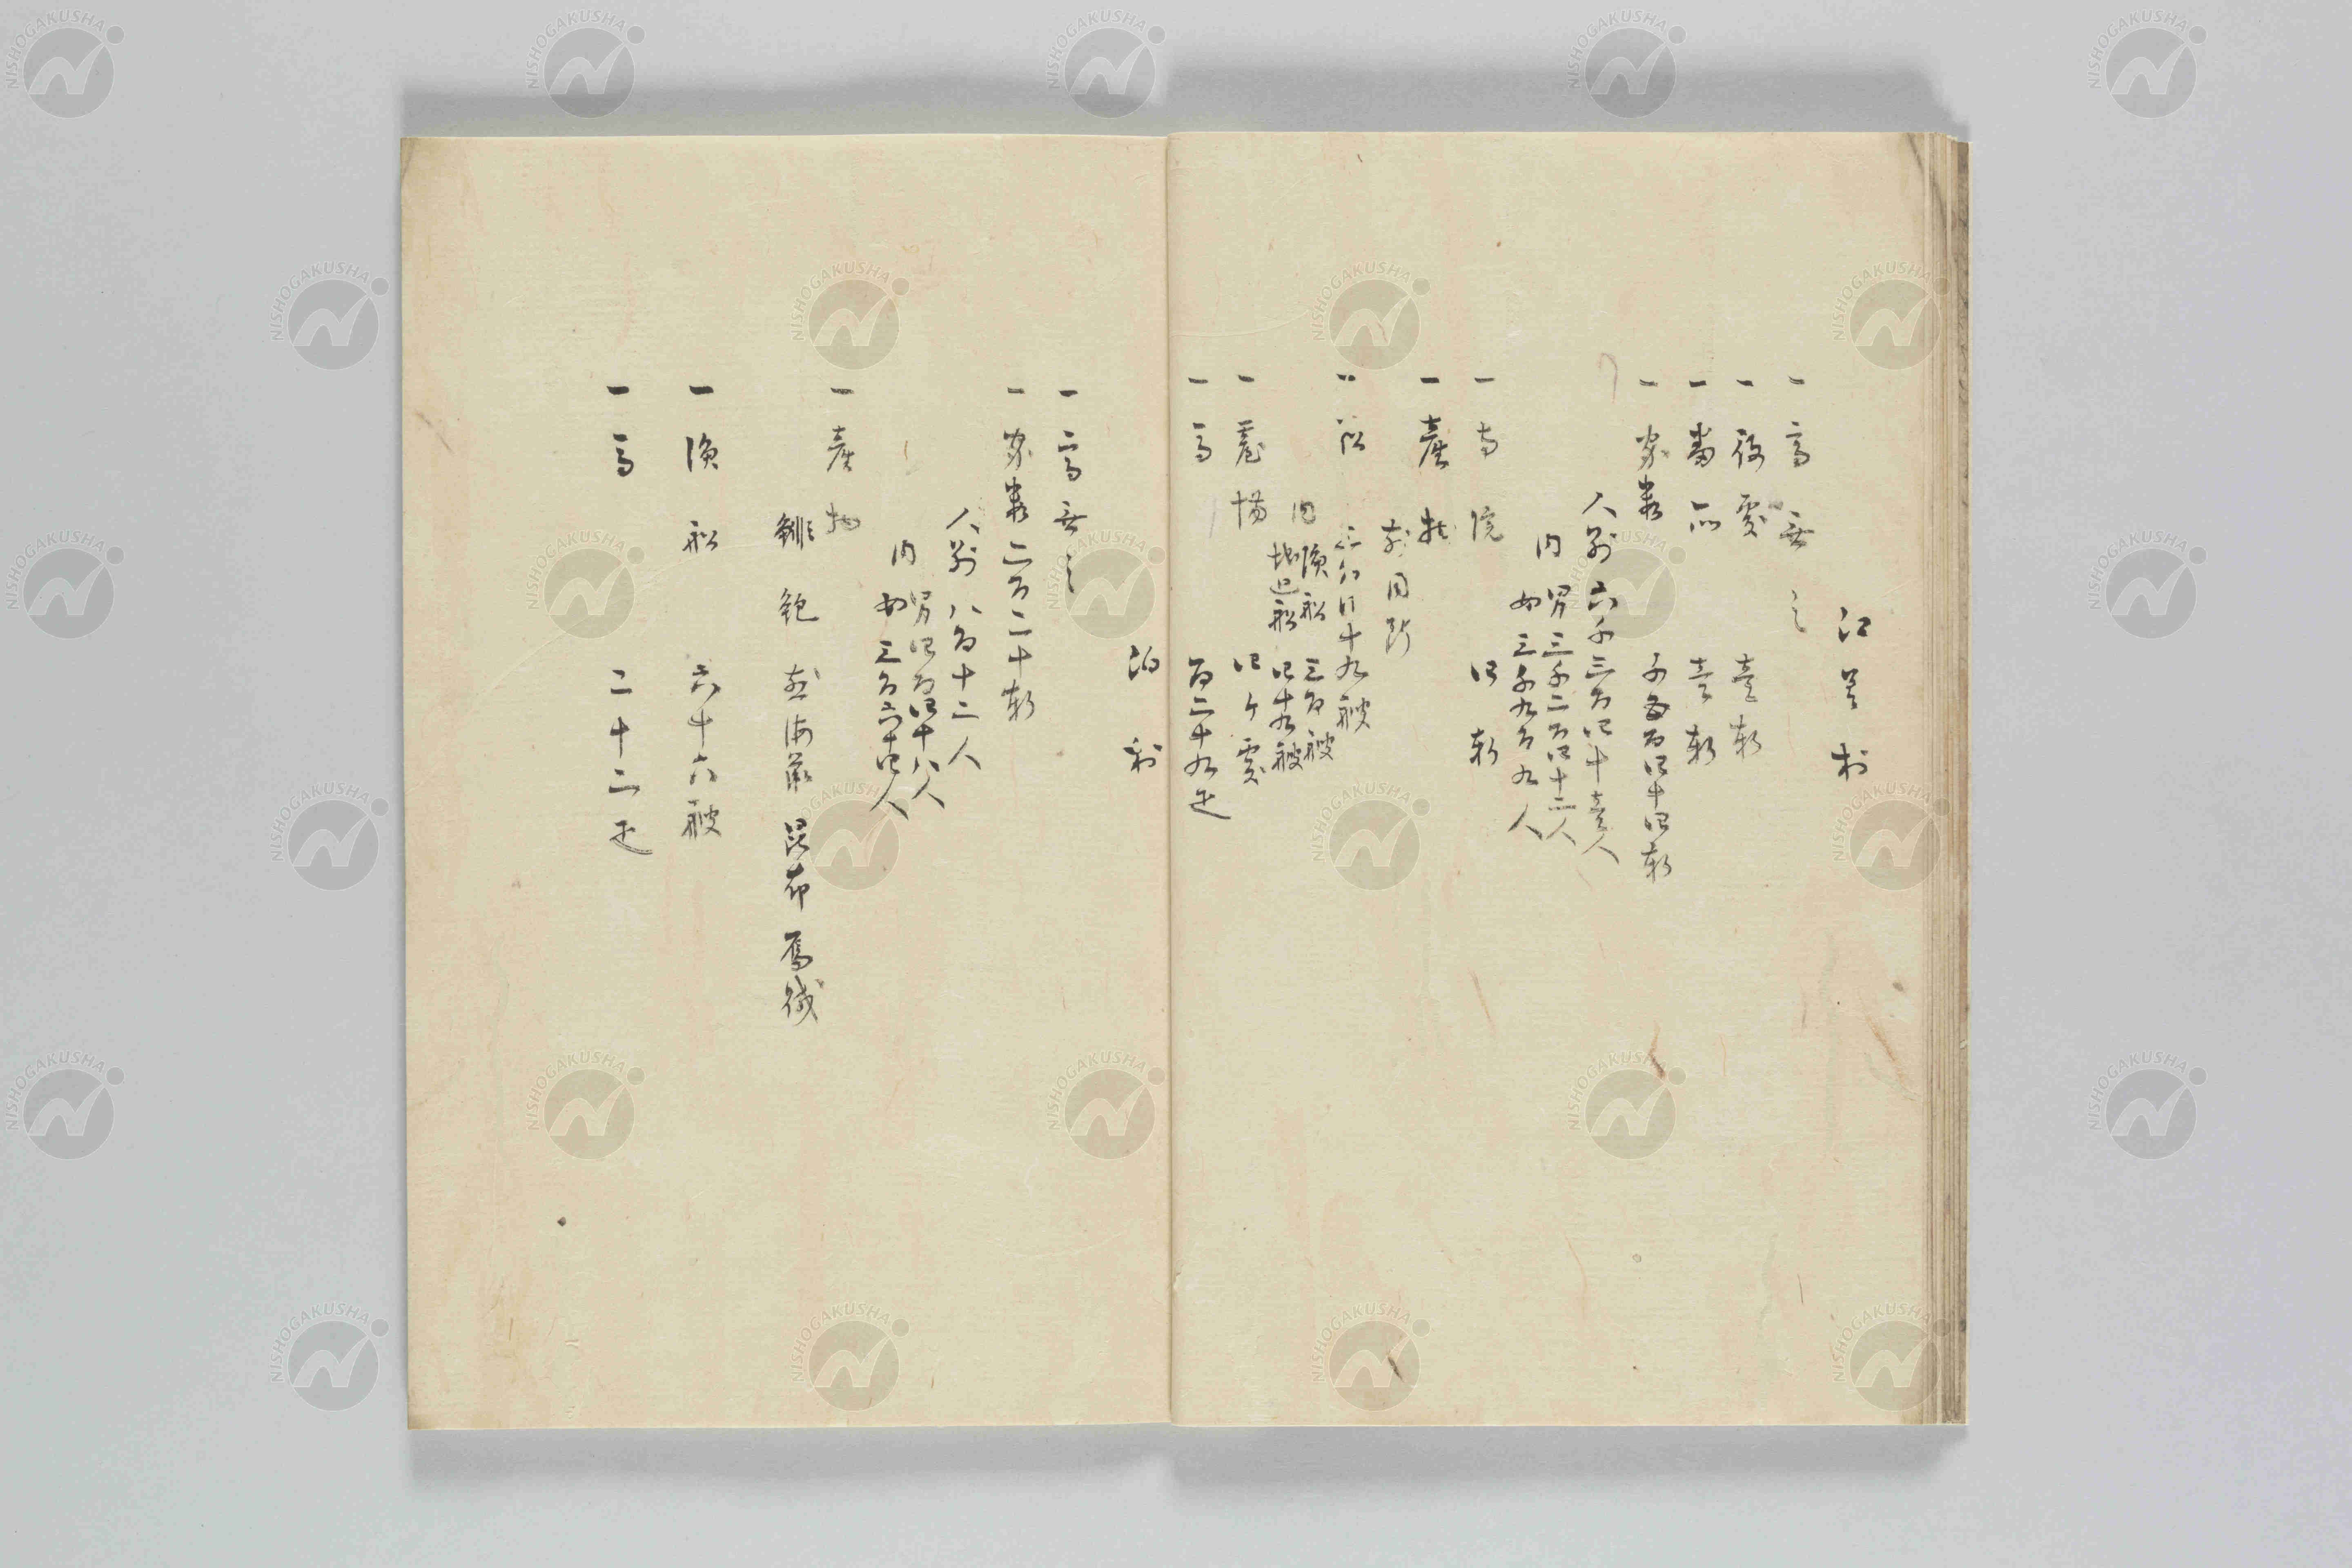 江差村
一高無之
一役処　壱軒
一番所　壱軒
一家数　千百四十四軒
人別　六千三百四十壱人
内　男三千二百四十二人
女三千九百九人
一寺院　四軒
一産物
前同断
一船　三百四十九艘
内　漁船　三百艘
地廻船　四十九艘
一蔵場　四ケ処
一馬　百三十九疋
泊村
一高無之
一家数二百二十軒
人別八百十二人
内　男四百四十八人
女三百六十四人
一産物
鯡　鮑　煎海鼠　昆布　鷹
一漁船　六十六艘
一馬　二十二疋
NISHOGAKUSHA